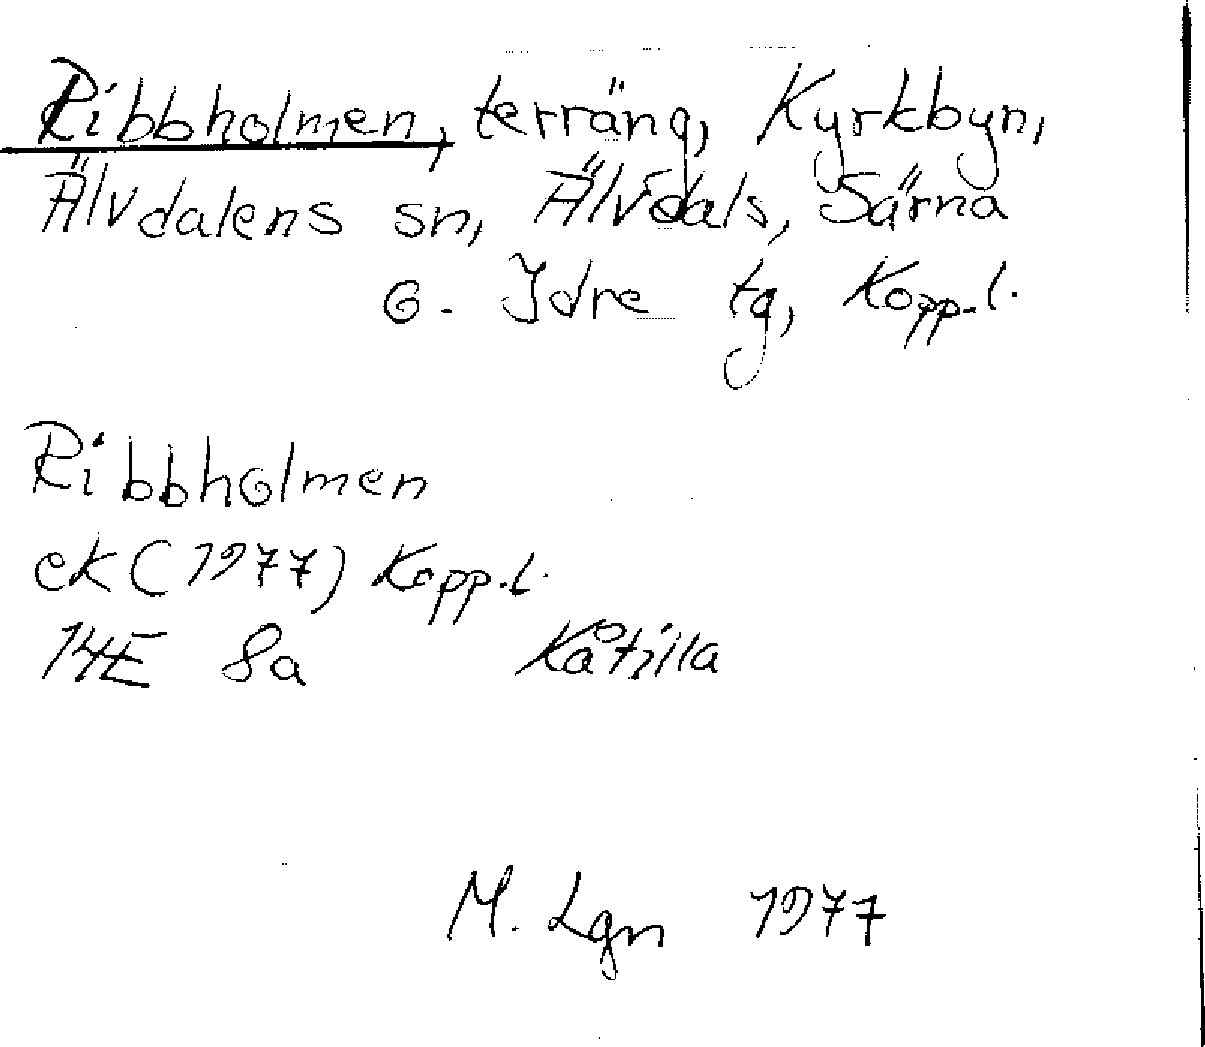 Ribbholmen, terräng, Kyrkbyn,
Älvdalens sn, Älvdals, Särna
o. Idre tg, Kopp.l.
Ribbholmen
ek (1977) Kopp.l.
14E 8a Kåtilla
M. Lgn 1977